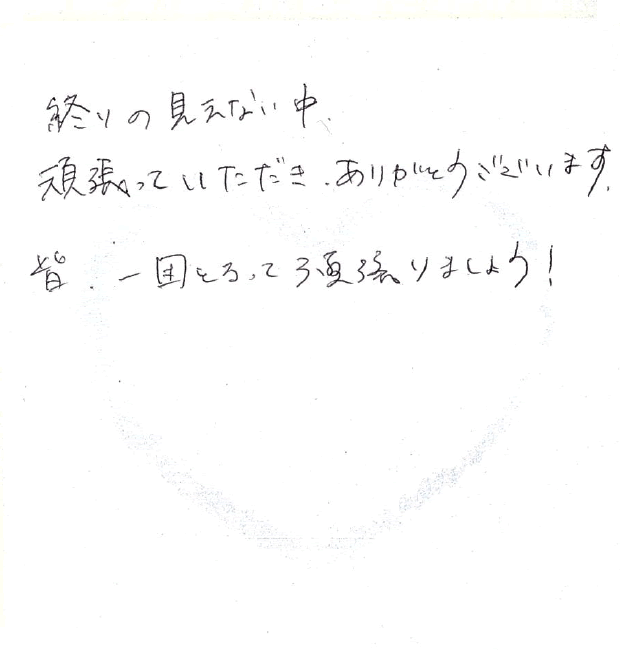 終りの見えない中、
頑張っていただき、ありがとうございます。
皆、一団となって頑張りましょう！